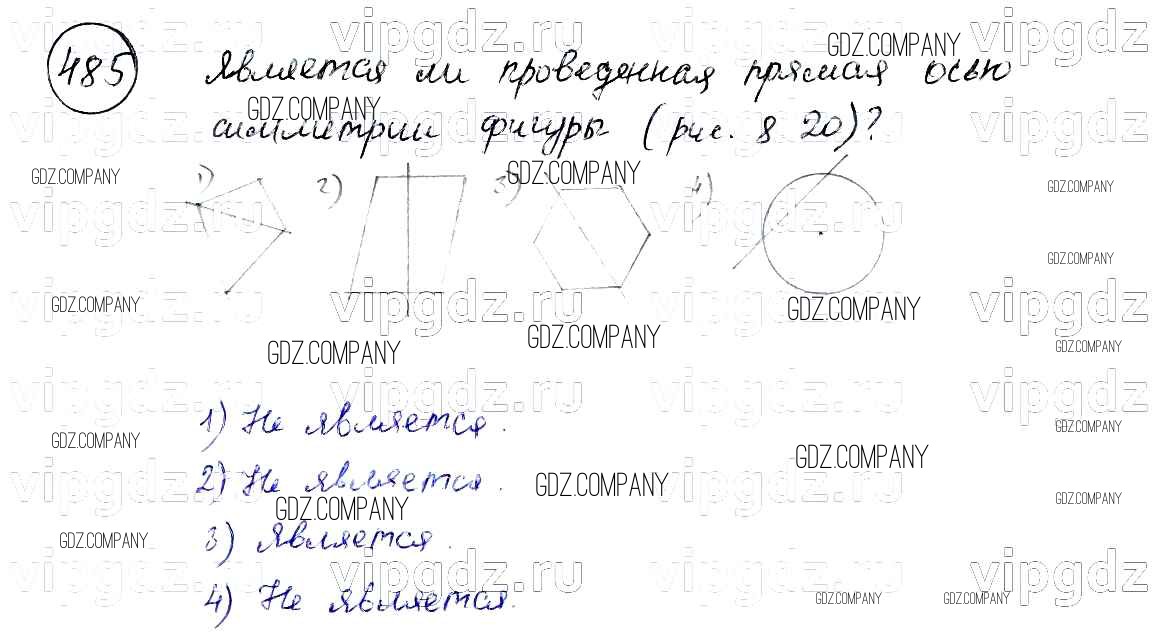 485 Является ли проведенная прямая осью
симметрии фигуры (рис. 8 20)?
1) 2) 3) 4)
1) Не является.
2) Не является.
3) Является.
4) Не является.
vipgdz.ru
GDZ.COMPANY